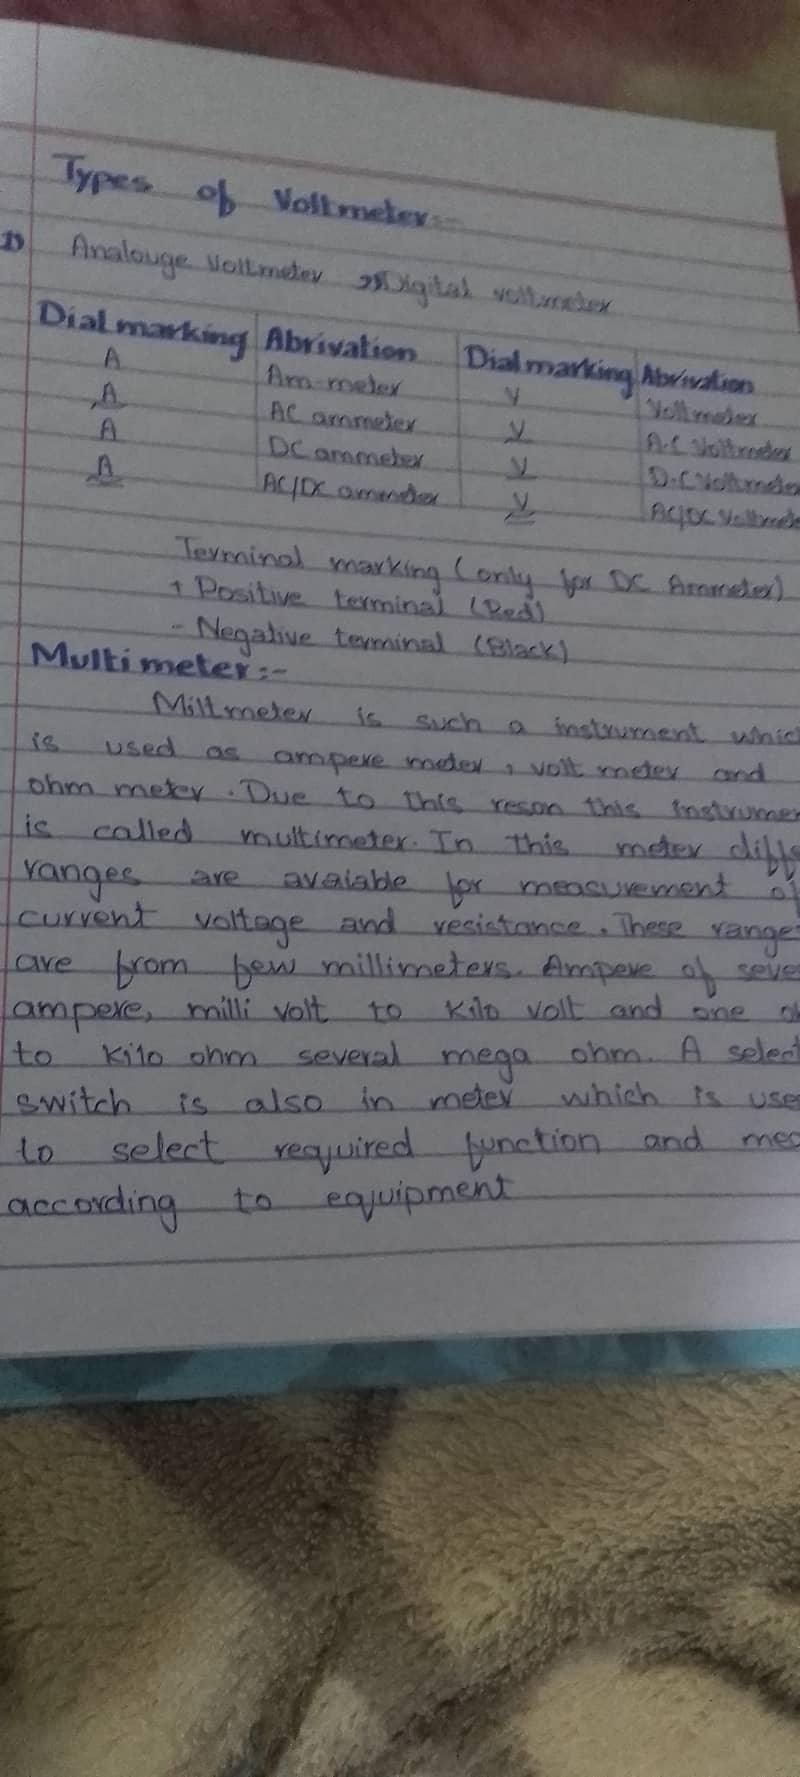 Types of Voltmeter:-
1) Analouge Voltmeter 2) Digital voltmeter
Dial marking Abrivation Dial marking Abrivation
A Am-meter V Voltmeter
A AC ammeter V A.C Voltmeter
A DC ammeter V D.C Voltmete
A AC/DC ammeter V AC/DC Voltmet
Terminal marking (only for DC Ammeter)
+ Positive terminal (Red)
- Negative terminal (Black)
Multimeter:-
Miltmeter is such a instrument whic
is used as ampere meter, volt meter and
ohm meter. Due to this reson this instrumen
is called multimeter. In this meter diff
ranges are avaiable for measurement of
current voltage and resistance. These range
are from few millimeters. Ampere of seve
ampere, milli volt to kilo volt and one o
to kilo ohm several mega ohm. A select
switch is also in meter which is use
to select required function and mea
according to equipment